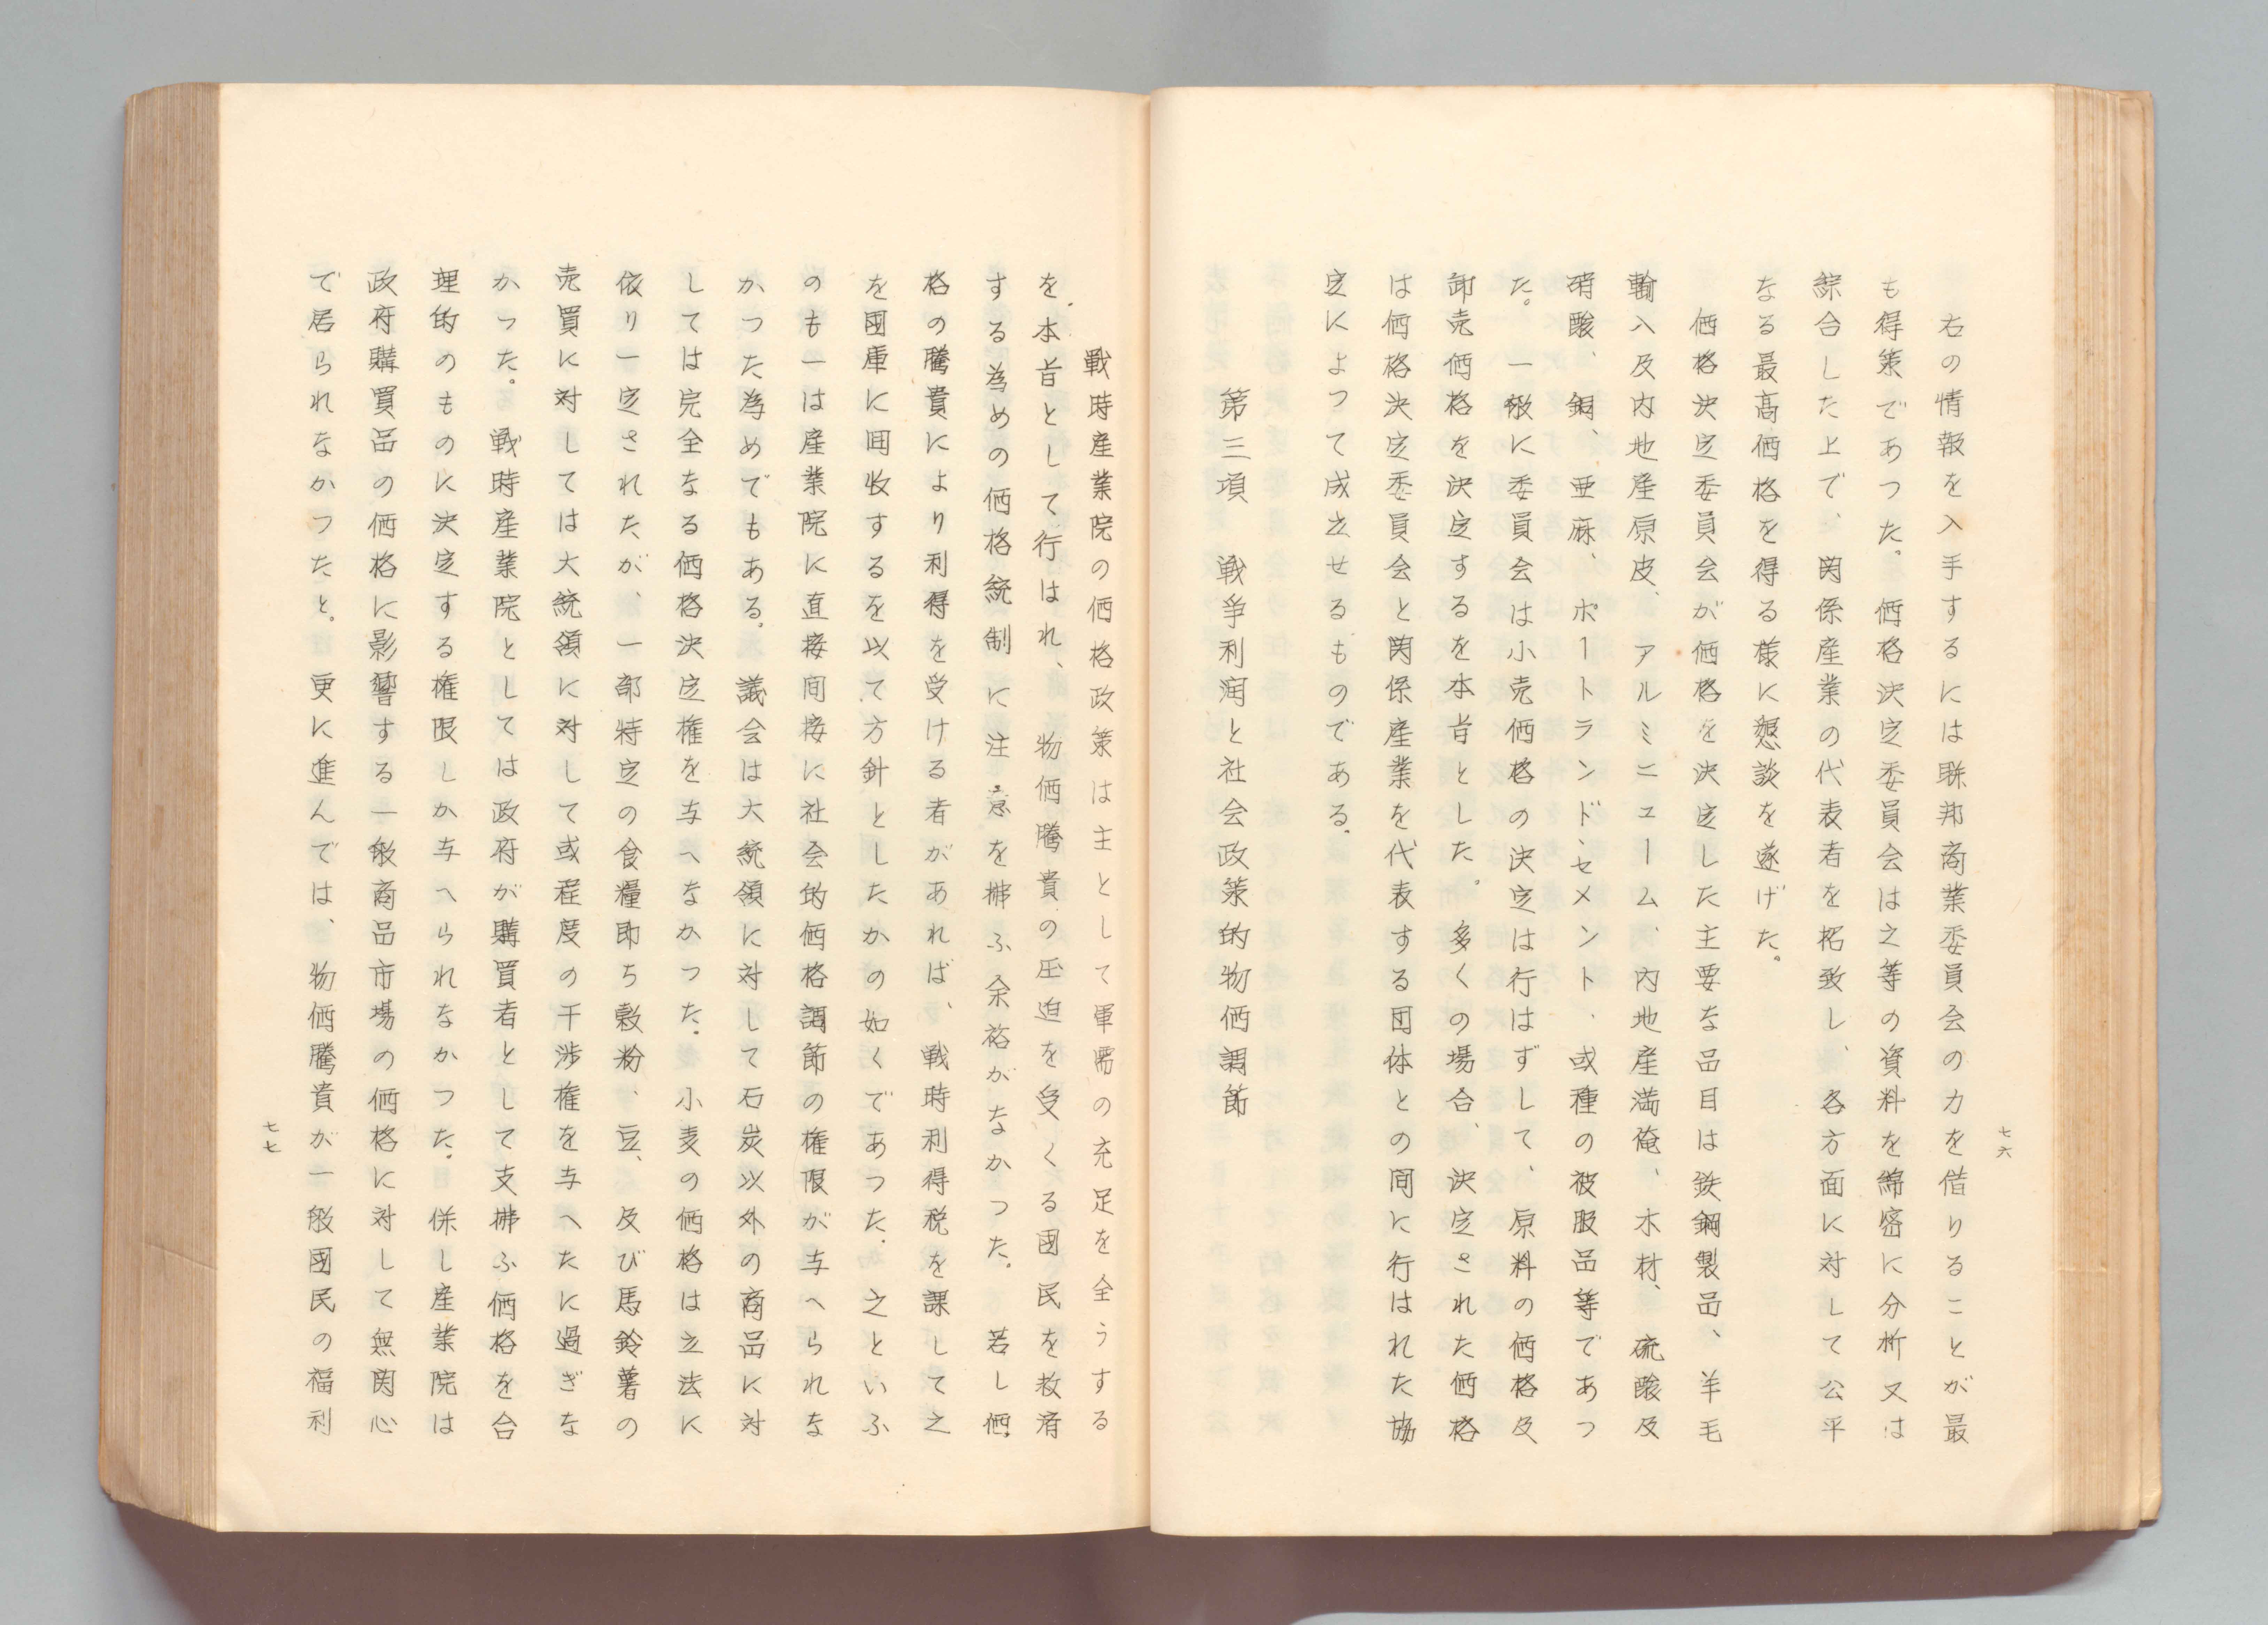 七六
右の情報を入手するには聯邦商業委員会の力を借りることが最
も得策であつた。価格決定委員会は之等の資料を綿密に分析又は
綜合した上で、関係産業の代表者を招致し、各方面に対して公平
なる最高価格を得る様に懇談を遂げた。
価格決定委員会が価格を決定した主要な品目は鉄鋼製品、羊毛
輸入及内地産原皮、アルミニューム、内地産満俺、木材、硫酸及
硝酸、銅、亜麻、ポートランド、セメント、或種の被服品等であつ
た。一般に委員会は小売価格の決定は行はずして、原料の価格及
卸売価格を決定するを本旨とした。多くの場合、決定された価格
は価格決定委員会と関係産業を代表する団体との間に行はれた協
定によつて成立せるものである。
第三項 戦争利潤と社会政策的物価調節
戰時産業院の価格政策は主として軍需の充足を全うする
を本旨として行はれ、物価騰貴の圧迫を受くる國民を救済
する為めの価格統制に注意を拂ふ余裕がなかつた。若し価
格の騰貴により利得を受ける者があれば、戦時利得税を課して之
を國庫に回收するを以て方針としたかの如くであつた。之といふ
のも一は産業院に直接間接に社会的価格調節の権限が与へられな
かつた為めでもある。議会は大統領に対して石炭以外の商品に対
しては完全なる価格決定権を与へなかつた。小麦の価格は立法に
依り一定されたが、一部特定の食糧即ち穀粉、豆、及び馬鈴薯の
売買に対しては大統領に対して或程度の干渉権を与へたに過ぎな
かつた。戦時産業院としては政府が購買者として支拂ふ価格を合
理的のものに決定する権限しか与へられなかつた。併し産業院は
政府購買品の価格に影響する一般商品市場の価格に対して無関心
で居られなかつたと。更に進んでは、物価騰貴が一般國民の福利
七七